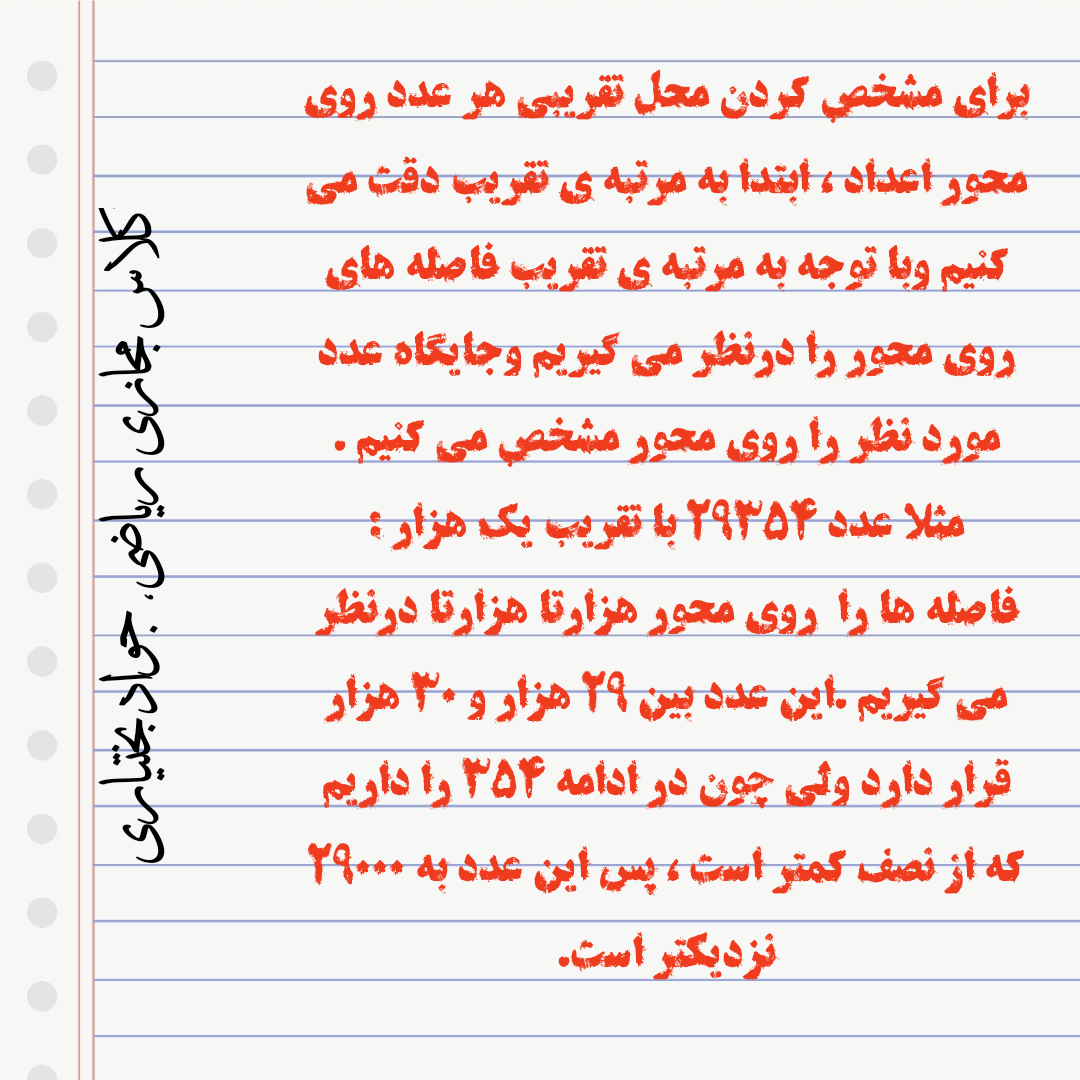 برای مشخص کردن محل تقریبی هر عدد روی
محور اعداد ، ابتدا به مرتبه ی تقریب دقت می
کنیم وبا توجه به مرتبه ی تقریب فاصله های
روی محور را درنظر می گیریم وجایگاه عدد
مورد نظر را روی محور مشخص می کنیم .
مثلا عدد ۲۹۳۵۴ با تقریب یک هزار :
فاصله ها را روی محور هزارتا هزارتا درنظر
می گیریم .این عدد بین ۲۹ هزار و ۳۰ هزار
قرار دارد ولی چون در ادامه ۳۵۴ را داریم
که از نصف کمتر است ، پس این عدد به ۲۹۰۰۰
نزدیکتر است.
کلاس مجازی ریاضی، جواد بختیاری